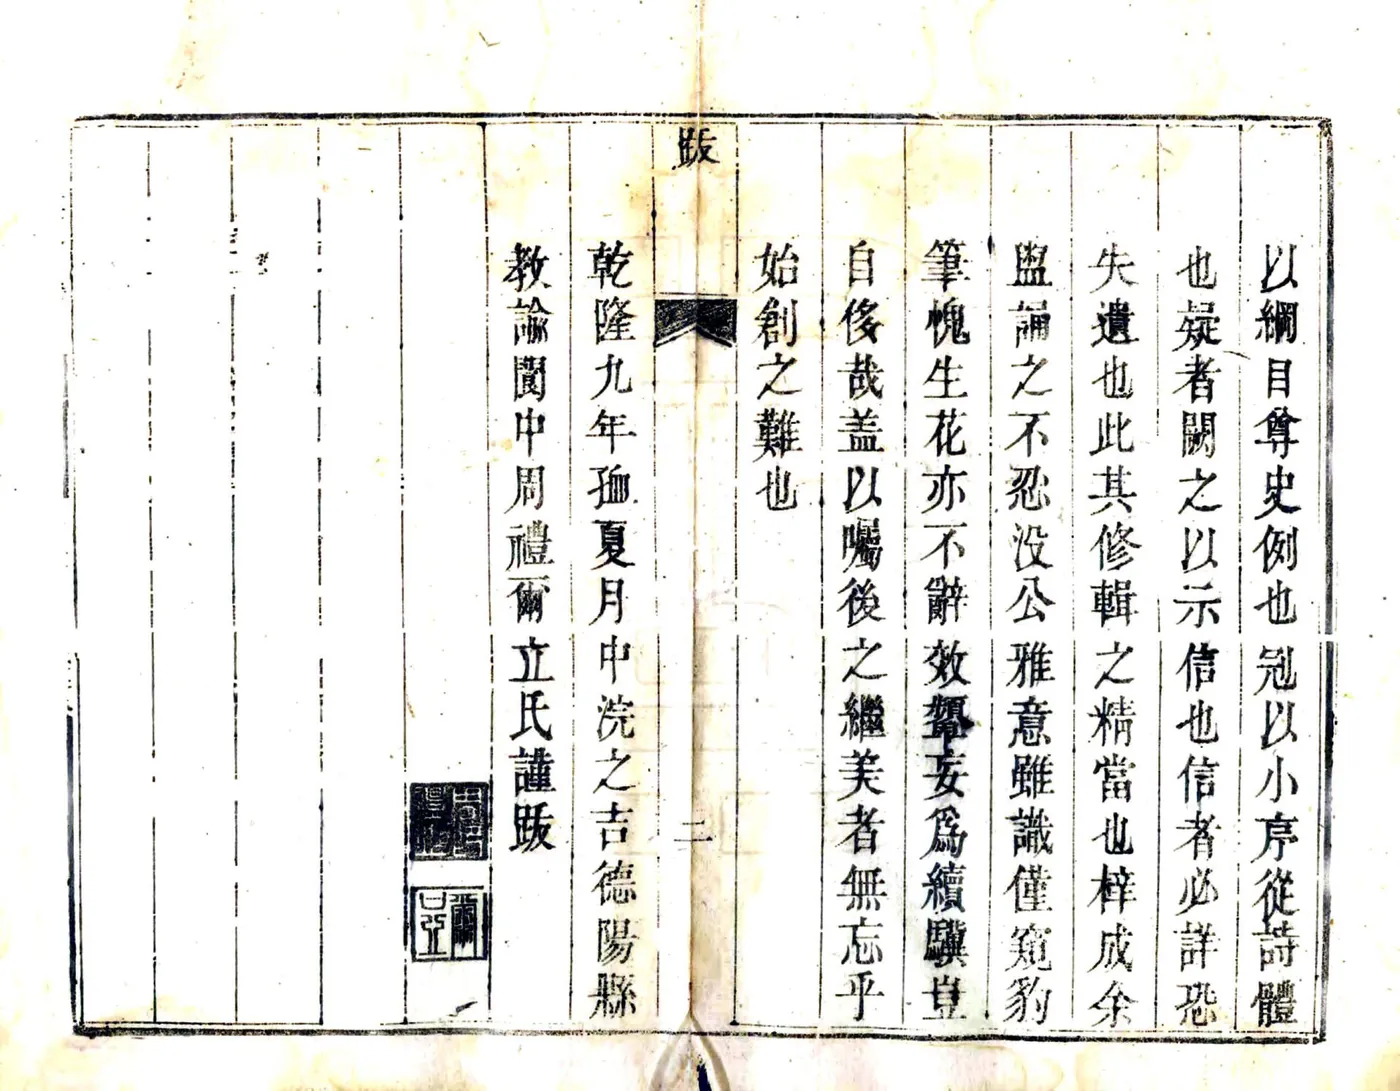 以綱目尊史例也冠以小序從詩體
也疑者闕之以示信也信者必詳恐
失遺也此其修輯之精當也梓成余
盥誦之不忍没公雅意雖識僅窺豹
筆愧生花亦不辭效顰妄爲續驥豈
自侈哉盖以囑後之繼美者無忘乎
始創之難也
跋
二
乾隆九年孤夏月中浣之吉德陽縣
教諭閬中周禮爾立氏謹跋